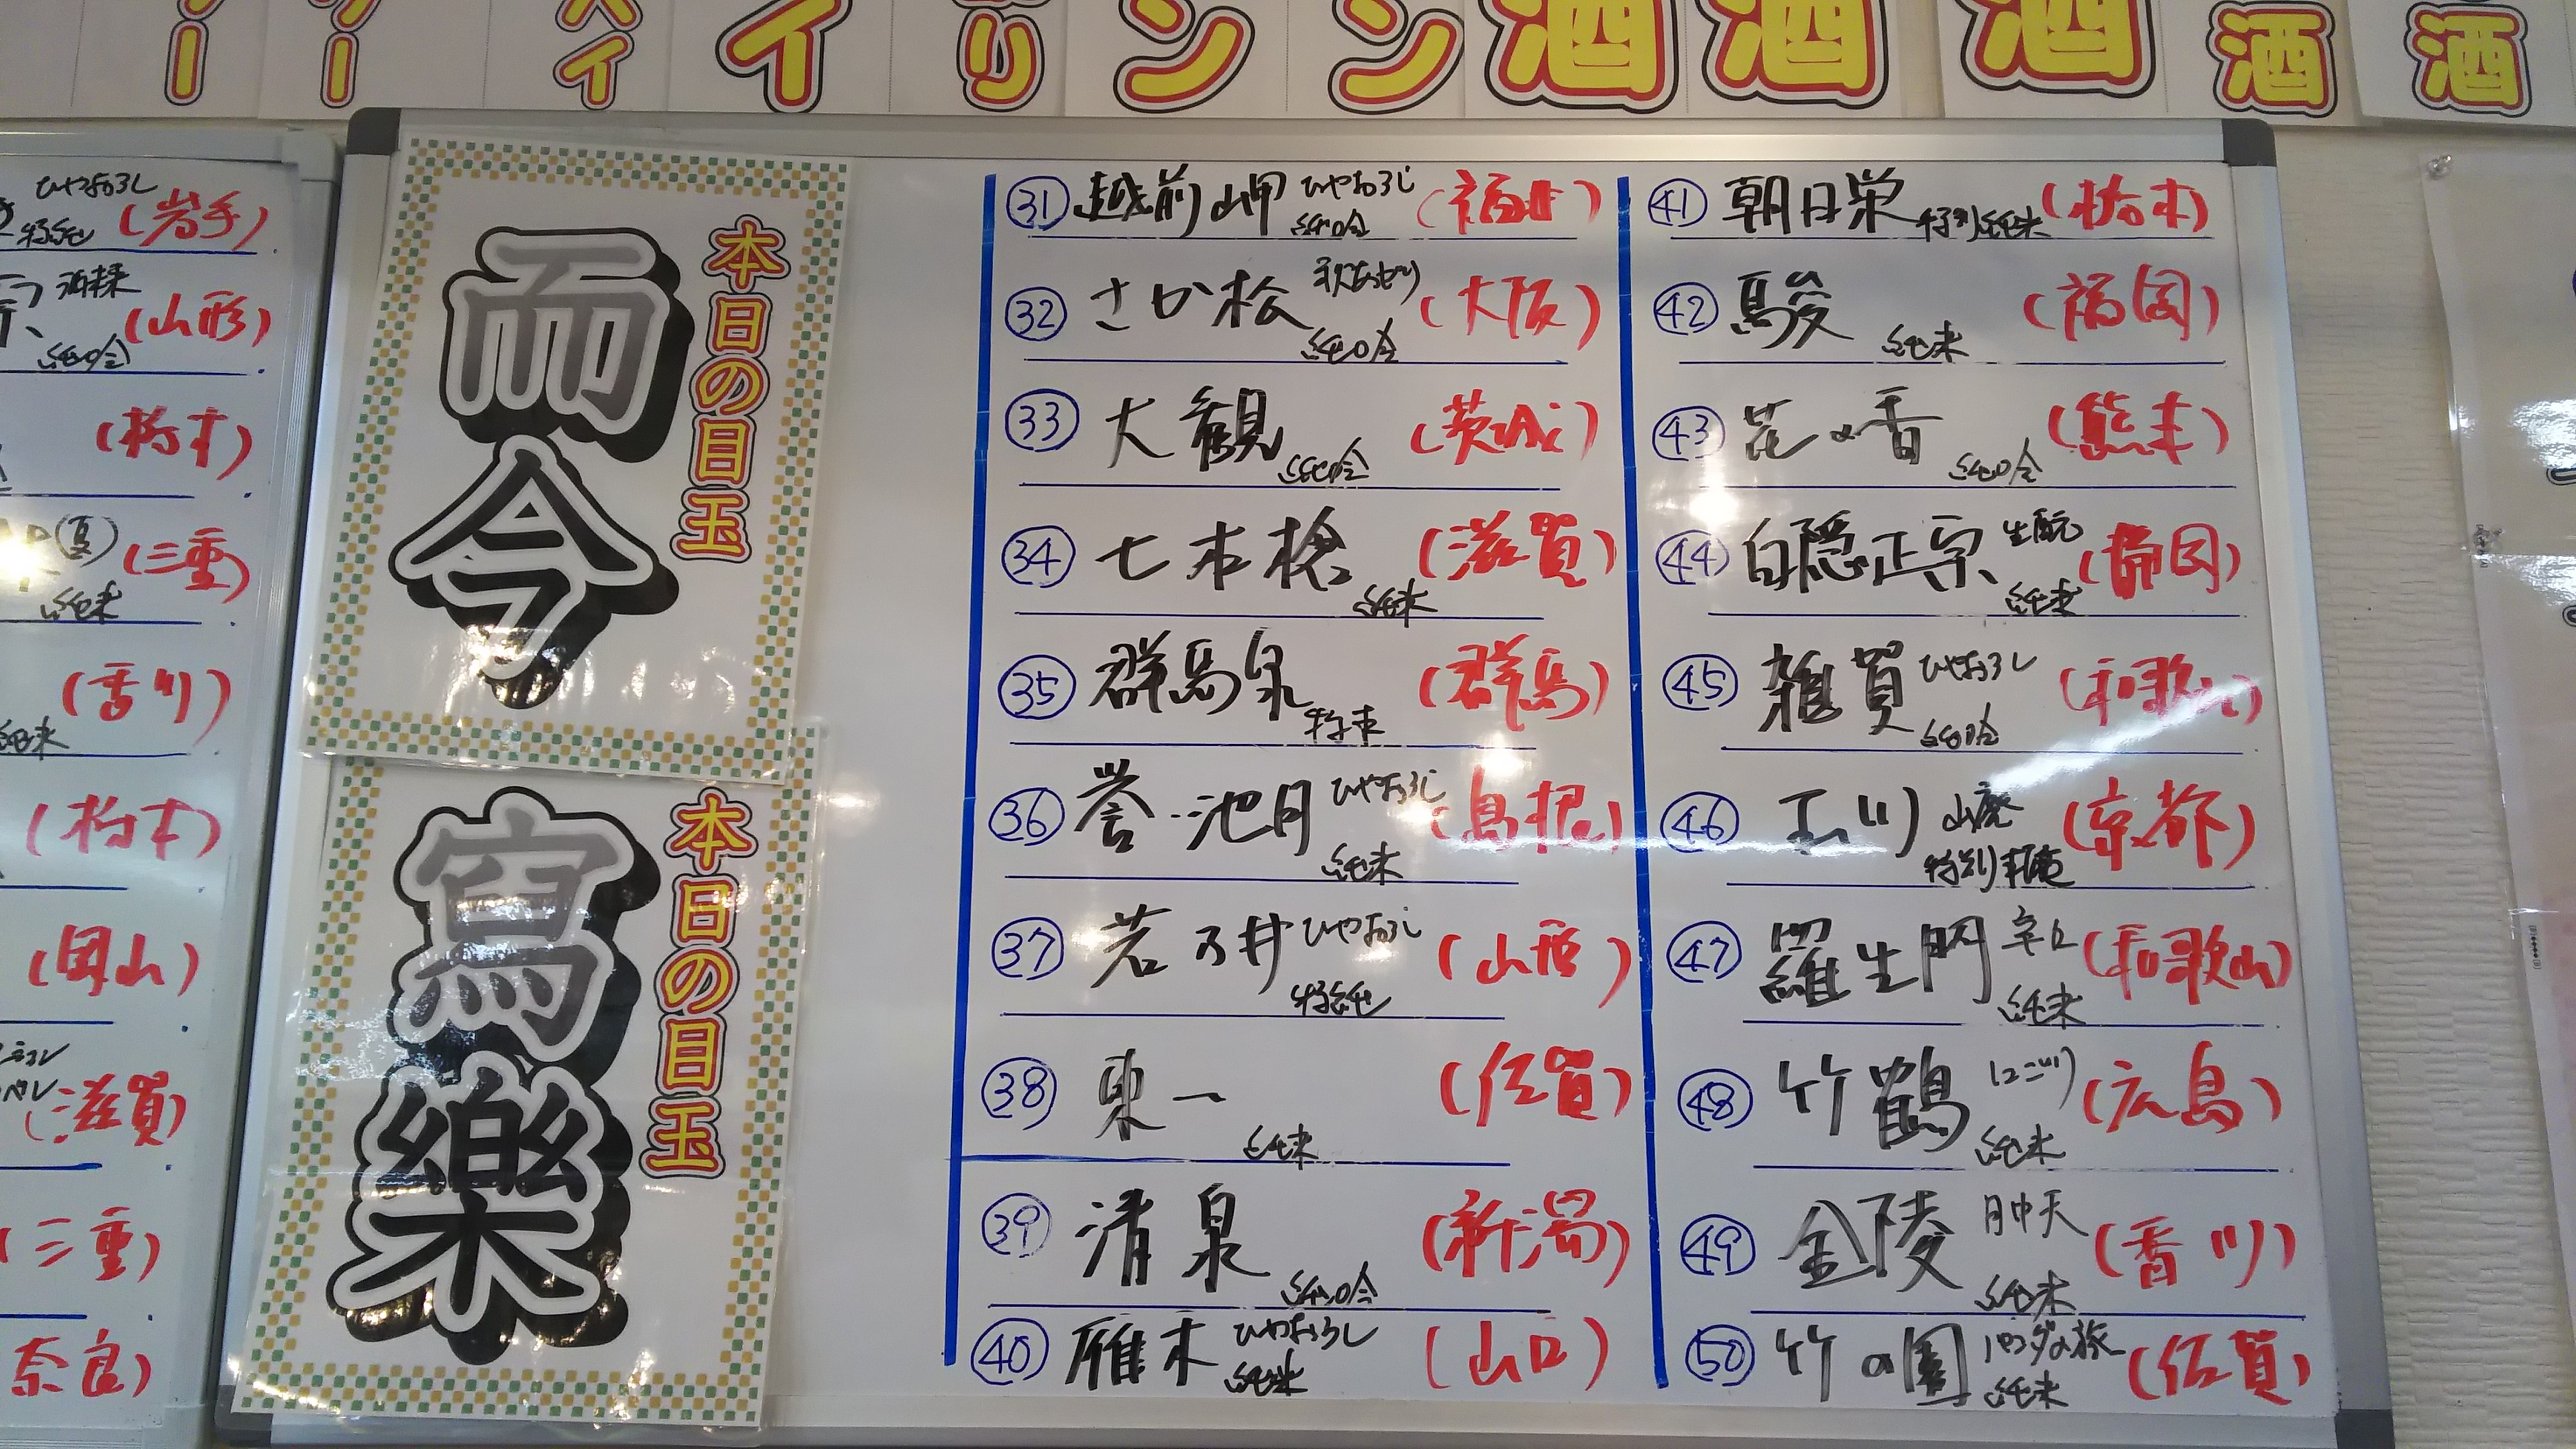 酒
酒
酒
酒
酒
ひやおろし
特純
(岩手)
(山形)
純吟
(栃木)
(夏)
(三重)
純米
(香川)
純米
(栃木)
(岡山)
(滋賀)
(三重)
奈良)
本日の目玉
而今
本日の目玉
寫樂
㉛ 越前岬 ひやおろし 純吟 (福井)
㉜ さか松 秋あがり 純吟 (大阪)
㉝ 大観 純吟 (茨城)
㉞ 七本槍 純米 (滋賀)
㉟ 群馬泉 (群馬)
㊱ 誉池月 ひやおろし 純米 (島根)
㊲ 若乃井 ひやおろし 特純 (山形)
㊳ 東一 純米 (佐賀)
㊴ 清泉 純吟 (新潟)
㊵ 雁木 ひやおろし 純米 (山口)
㊶ 朝日栄 特別純米 (栃木)
㊷ 駿 純米 (福岡)
㊸ 花の香 純吟 (熊本)
㊹ 白隠正宗 生酛 純米 (静岡)
㊺ 雑賀 ひやおろし 純吟 (和歌山)
㊻ 玉川 山廃 (京都)
㊼ 羅生門 辛口 純米 (和歌山)
㊽ 竹鶴 にごり 純米 (広島)
㊾ 金陵 月中天 純米 (香川)
㊿ 竹の園 パンダの旅 純米 (佐賀)